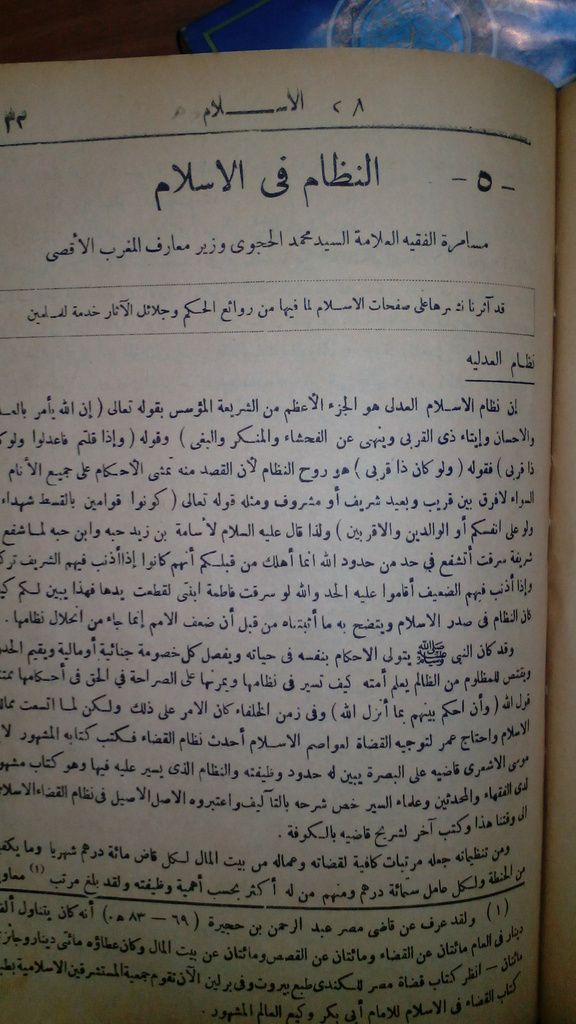 ٢٨ الاســـلام ٣٣
- ٥ - النظام فى الاسلام
مسامرة الفقيه العلامة السيد محمد الحجوى وزير معارف المغرب الأقصى
قد آثرنا نشرها على صفحات الاسلام لما فيها من روائع الحكم وجلائل الآثار خدمة للمسلمين
نظام العدليه
إن نظام الاسلام العدل هو الجزء الأعظم من الشريعة المؤسس بقوله تعالى ( إن الله يأمر
والاحسان وإيتاء ذى القربى وينهى عن الفحشاء والمنكر والبغى ) وقوله ( وإذا قلتم فاعدلوا
ذا قربى ) فقوله ( ولو كان ذا قربى ) هو روح النظام لأن القصد منه تمشى الأحكام على جميع الأنام
السواء لا فرق بين قريب وبعيد شريف أو مشروف ومثله قوله تعالى ( كونوا قوامين بالقسط شهداء
ولو على انفسكم أو الوالدين والاقربين ) ولذا قال عليه السلام لأسامة بن زيد حبه وابن حبه لما شفع
شريفة سرقت أتشفع في حد من حدود الله انما أهلك من قبلكم أنهم كانوا إذا أذنب فيهم الشريف
وإذا أذنب فيهم الضعيف أقاموا عليه الحد والله لو سرقت فاطمة ابنتى لقطعت يدها فهذا يبين لكم
كان النظام فى صدر الاسلام ويتضح به ما أثبتناه من قبل أن ضعف الامم إنما جاء من انحلال نظامها .
وقد كان النبى ﷺ يتولى الاحكام بنفسه فى حياته ويفصل كل خصومة جنائية أو مالية ويقيم
ويقتص للمظلوم من الظالم يعلم أمته كيف تسير فى نظامها ويمرنها على الصراحة في الحق فى أحكامها
قول الله ( وأن احكم بينهم بما أنزل الله ) وفى زمن الخلفاء كان الامر على ذلك ولكن لما اتسعت
الاسلام واحتاج عمر لتوجيه القضاة لعواصم الاسلام أحدث نظام القضاء فكتب كتابه المشهور
موسى الاشعرى قاضيه على البصرة يبين له حدود وظيفته والنظام الذى يسير عليه فيها وهو كتاب
لدى الفقهاء والمحدثين وعلماء السير خص شرحه بالتآليف واعتبروه الاصل الاصيل فى نظام القضاء
الى وقتنا هذا وكتب آخر لشريح قاضيه بالكوفة .
ومن تنظيماته جعله مرتبات كافية لقضاته وعماله من بيت المال لكل قاض مائة درهم شهريا وما
من الحنطة ولكل عامل ستمائة درهم ومنهم من له أكثر بحسب أهمية وظيفته ولقد بلغ مرتب (١)
(١) ولقد عرف عن قاضى مصر عبد الرحمن بن حجيرة ( ٦٩ — ٨٣ هـ ) أنه كان يتناول
دينار فى العام مائتان عن القضاء ومائتان عن القصص ومائتان عن بيت المال وكان عطاؤه مائتى دينار
مائتان — انظر كتاب قضاة مصر للكندى طبع بيروت وفى برلين الآن تقوم جمعية المستشرقين الاسلامية
كتاب القضاء فى الاسلام للامام أبى بكر وكيع العالم المشهور .